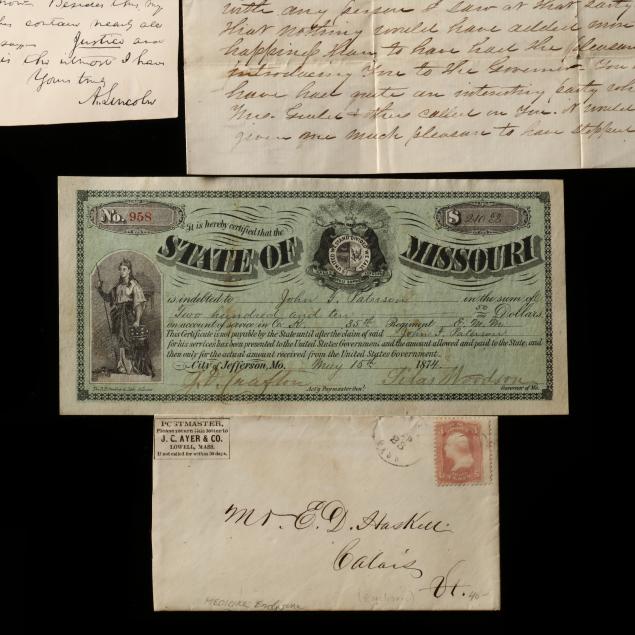 now. Besides this, my
contain nearly all
Justice and
is the utmost I have
Yours truly
A. Lincoln
with any person I saw at that party
that nothing would have added more
happiness than to have had the pleasure
introducing you to the Governor. You
have had quite an interesting party
Mrs. & others called on you. it would
given me much pleasure to have stopped
No. 958
$ 210 50
It is hereby certified that the
STATE OF MISSOURI
is indebted to John F. Paterson in the sum of
Two hundred and ten 50 Dollars,
on account of service in Co. K. 35th Regiment E. M. M.
This Certificate is not payable by the State until after the claim of said John F. Paterson
for his services has been presented to the United States Government and the amount allowed and paid to the State, and
then only for the actual amount received from the United States Government.
City of Jefferson, Mo. May 15th 1874.
Silas Woodson
Act'g Paymaster Gen'l
Governor of Mo.
POSTMASTER,
Please return this letter to
J. C. AYER & CO.
LOWELL, MASS.
If not called for within 30 days.
Mr. E. D. Haskell.
Calais
Vt.
40-
MEDICINE Enclosure